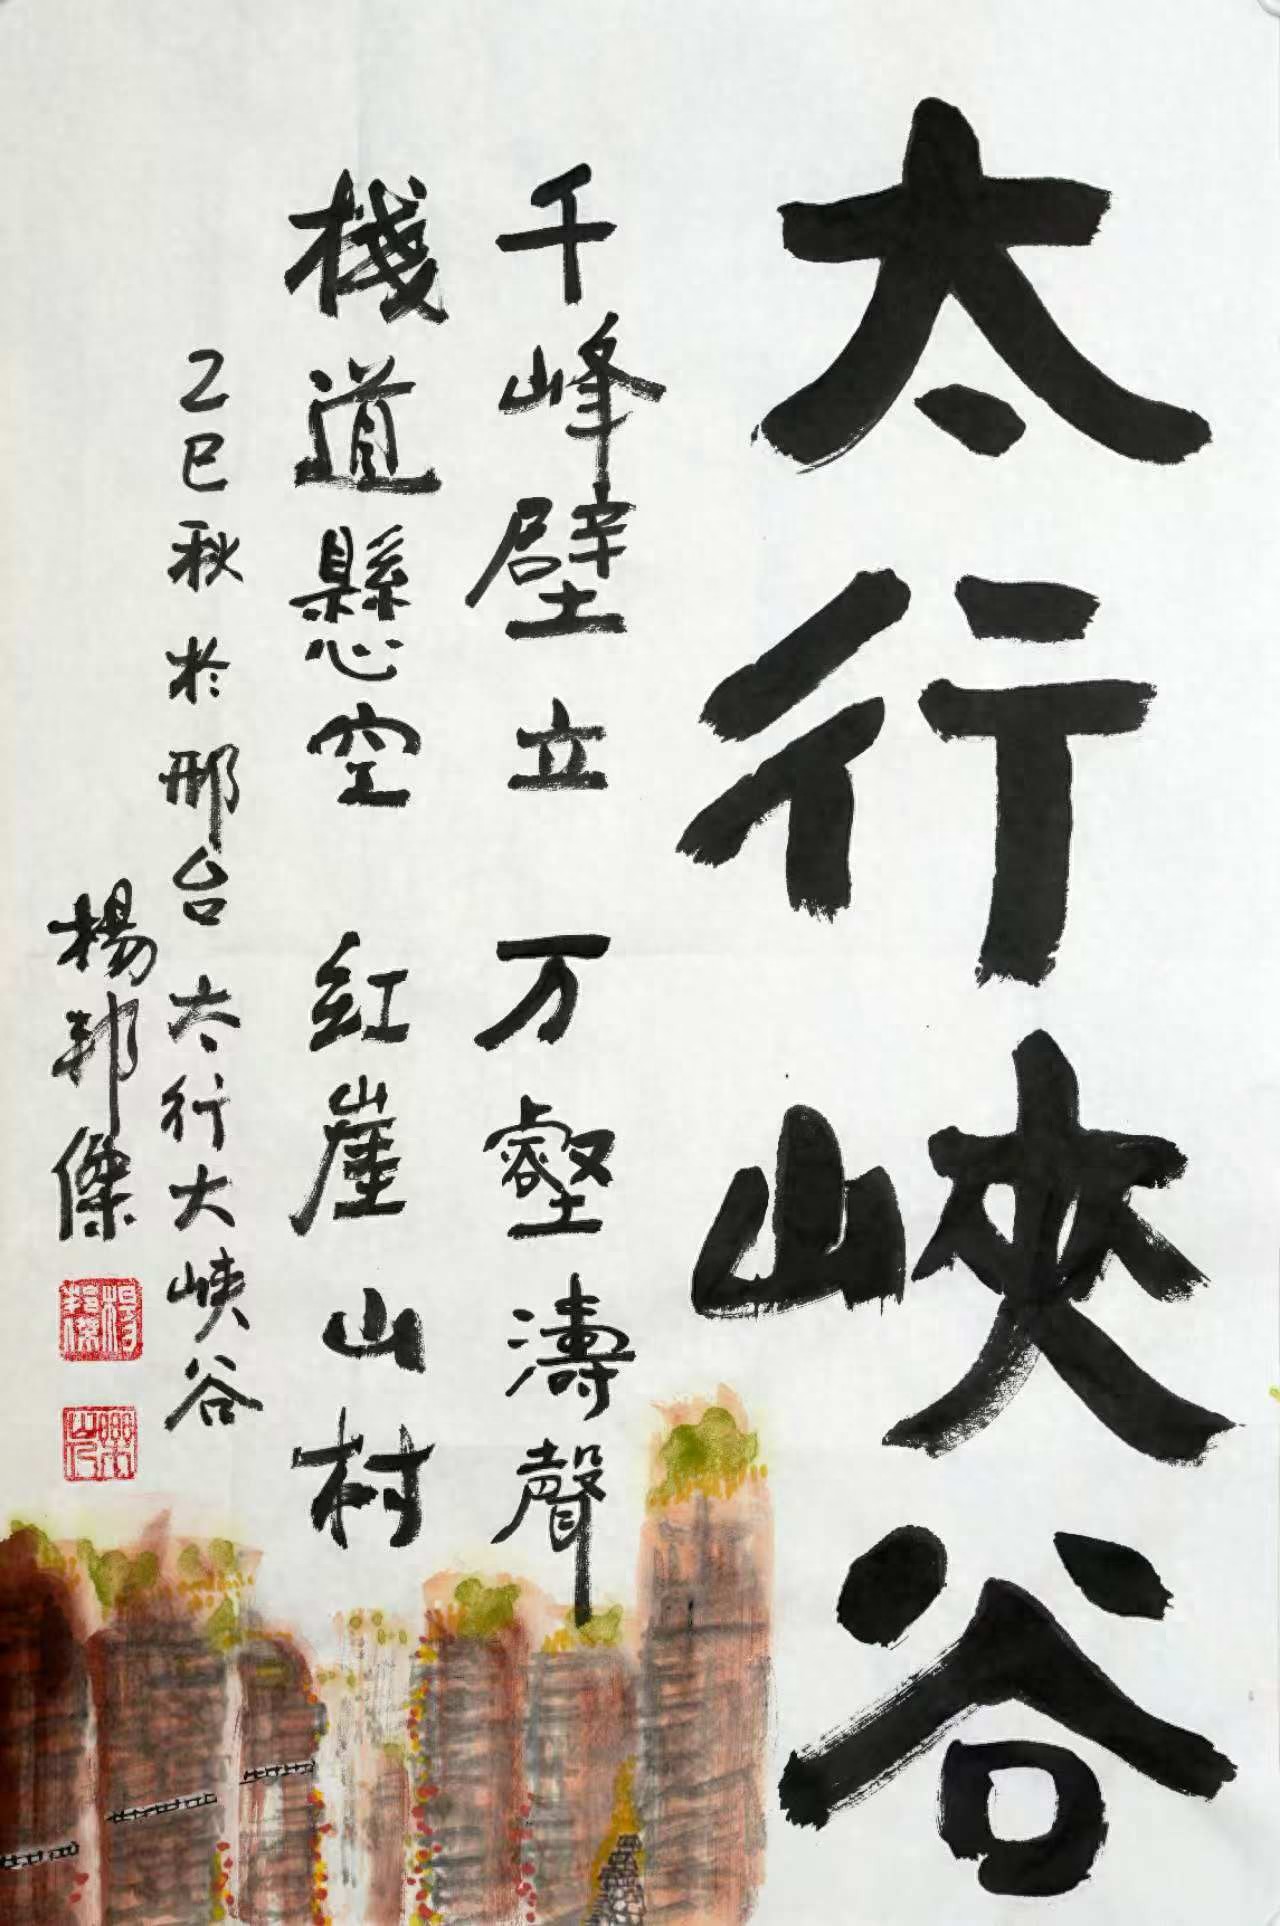 太行峽谷
千峰壁立 万壑濤聲
棧道懸空 紅崖山村
乙巳秋於邢台太行大峡谷
楊邦傑